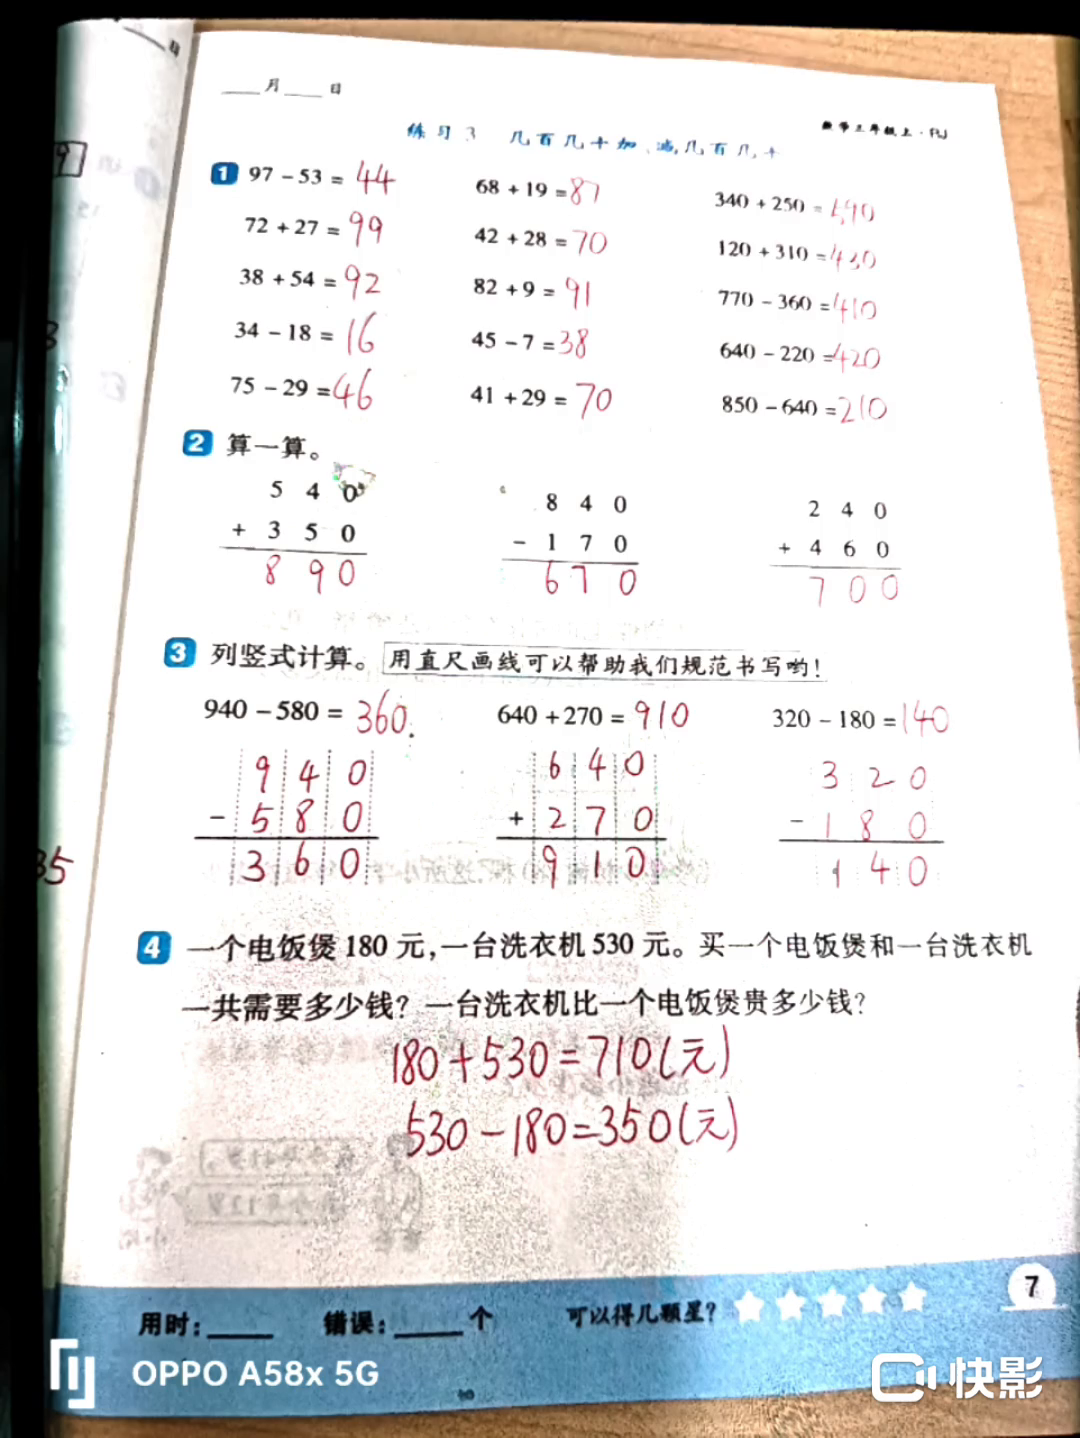 ____月____日
数学三年级上·RJ
练习3 几百几十加、减几百几十
1 97－53＝44 68＋19＝87 340＋250＝590
72＋27＝99 42＋28＝70 120＋310＝430
38＋54＝92 82＋9＝91 770－360＝410
34－18＝16 45－7＝38 640－220＝420
75－29＝46 41＋29＝70 850－640＝210
2 算一算。
5 4 0 8 4 0 2 4 0
＋ 3 5 0 － 1 7 0 ＋ 4 6 0
8 9 0 6 7 0 7 0 0
3 列竖式计算。 用直尺画线可以帮助我们规范书写哟！
940－580＝360. 640＋270＝910 320－180＝140
9 4 0 6 4 0 3 2 0
－ 5 8 0 ＋ 2 7 0 － 1 8 0
3 6 0 9 1 0 1 4 0
4 一个电饭煲180元，一台洗衣机530元。买一个电饭煲和一台洗衣机
一共需要多少钱？一台洗衣机比一个电饭煲贵多少钱？
180＋530＝710(元)
530－180＝350(元)
用时：____ 错误：____个 可以得几颗星？ 7
OPPO A58x 5G 快影